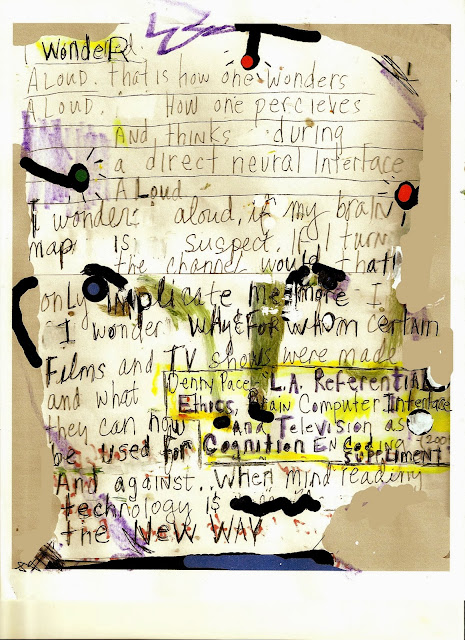 I WondeReD
ALOUD. that is how one wonders
ALOUD. How one percieves
And thinks during
a direct neural Interface
ALoud
I wonder aloud, if my brain
map is suspect. If I turn
the channel would that
only implicate me more I
I wonder WAY & FOR WHOM certain
Films and TV shows were made
and what Denny Pace L.A. Referential
Ethics, Brain Computer Interface
they can now And Television as
be used for Cognition Encoding
Suppliment
And against.. When mind reading
technology is
the New WAY